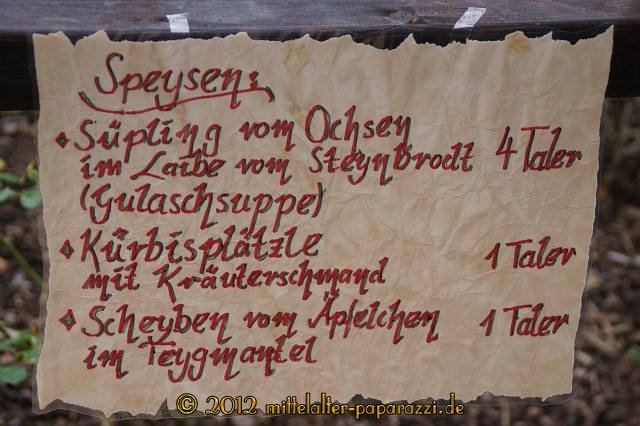 Speysen:
Süpling vom Ochsen
im Laibe vom Steynbrodt 4 Taler
(Gulaschsuppe)
Kürbisplätzle
mit Kräuterschmand 1 Taler
Scheyben vom Äpfelchen 1 Taler
im Teygmantel
© 2012 mittelalter-paparazzi.de